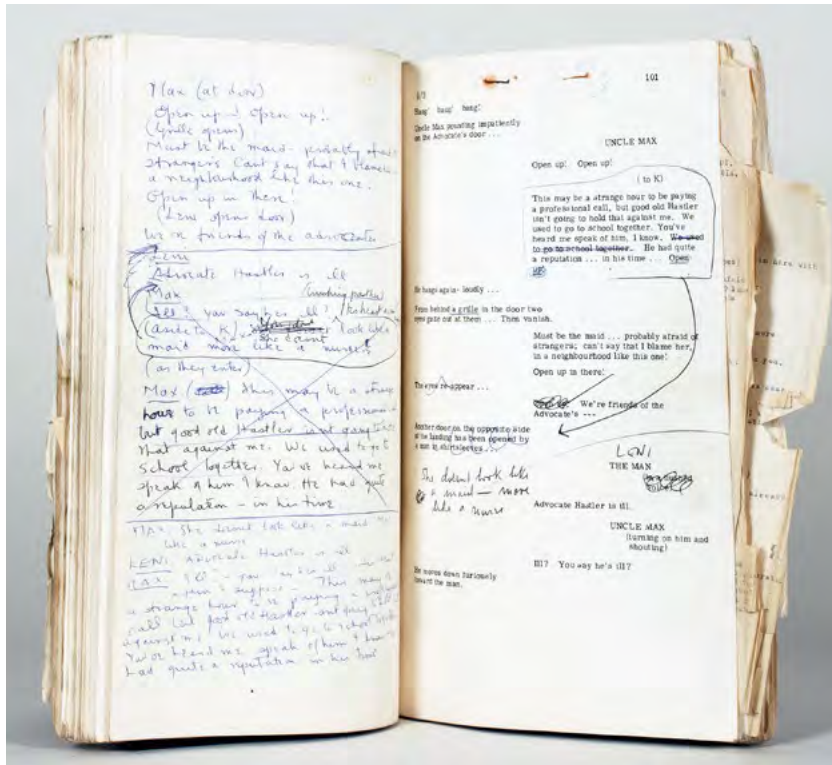 Max (at door)
Open up! Open up!
(Grille opens)
Must be the maid - probably afraid
strangers Can't say that I blame
a neighbourhood like this one.
Open up in there!
(Leni opens door)
We're friends of the advocates
Leni
Advocate Hastler is ill
Max
Ill? You say he's ill?
(aside to K) look like
She doesn't
maid more like a nurse
(as they enter)
Max. This may be a strange
hour to be paying a professional
but good old Hastler isn't going to
that against me. We used to go to
school together. You've heard me
speak of him I know. He had quite
a reputation - in his time
MAX She doesn't look like a maid
like a nurse
LENI Advocate Hastler is ill
MAX Ill - you say he's ill
This may be
a strange hour to be paying a
call but good old Hastler isn't going
against me. We used to go to school together
You've heard me speak of him I know
had quite a reputation in his time
101
Bang! bang! bang!
Uncle Max pounding impatiently
on the Advocate's door ...
UNCLE MAX
Open up! Open up!
(to K)
This may be a strange hour to be paying
a professional call, but good old Hastler
isn't going to hold that against me. We
used to go to school together. You've
heard me speak of him, I know. We used
to go to school together. He had quite
a reputation ... in his time ... Open
up!
He bangs again - loudly ...
From behind a grille in the door two
eyes gaze out at them ... Then vanish.
Must be the maid ... probably afraid of
strangers; can't say that I blame her,
in a neighbourhood like this one!
Open up in there!
The eyes re-appear ...
We're friends of the
Advocate's ---
Another door on the opposite side
of the landing has been opened by
a man in shirtsleeves ...
LENI
THE MAN
She doesn't look like
a maid - more
like a nurse
Advocate Hastler is ill.
UNCLE MAX
(turning on him and
shouting)
Ill? You say he's ill?
He moves down furiously
toward the man.